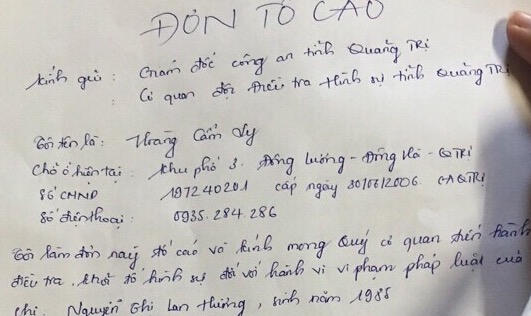 ĐƠN TỐ CÁO
Kính gửi : Giám đốc công an tỉnh Quảng Trị
: Cơ quan đội Điều tra Hình sự tỉnh Quảng Trị
Tôi tên là : Hoàng Cẩm Vy
Chỗ ở hiện tại : Khu phố 3. Đông Lương - Đông Hà - QTRỊ
Số CMND 197240201 cấp ngày 30/06/2006. CAQTRỊ
Số điện thoại : 0935.284.286
Tôi làm đơn này tố cáo và kính mong Quý cơ quan tiến hành
điều tra, khởi tố hình sự đối với hành vi vi phạm pháp luật của
chị. Nguyễn Thi Lan Hương, sinh năm 1985